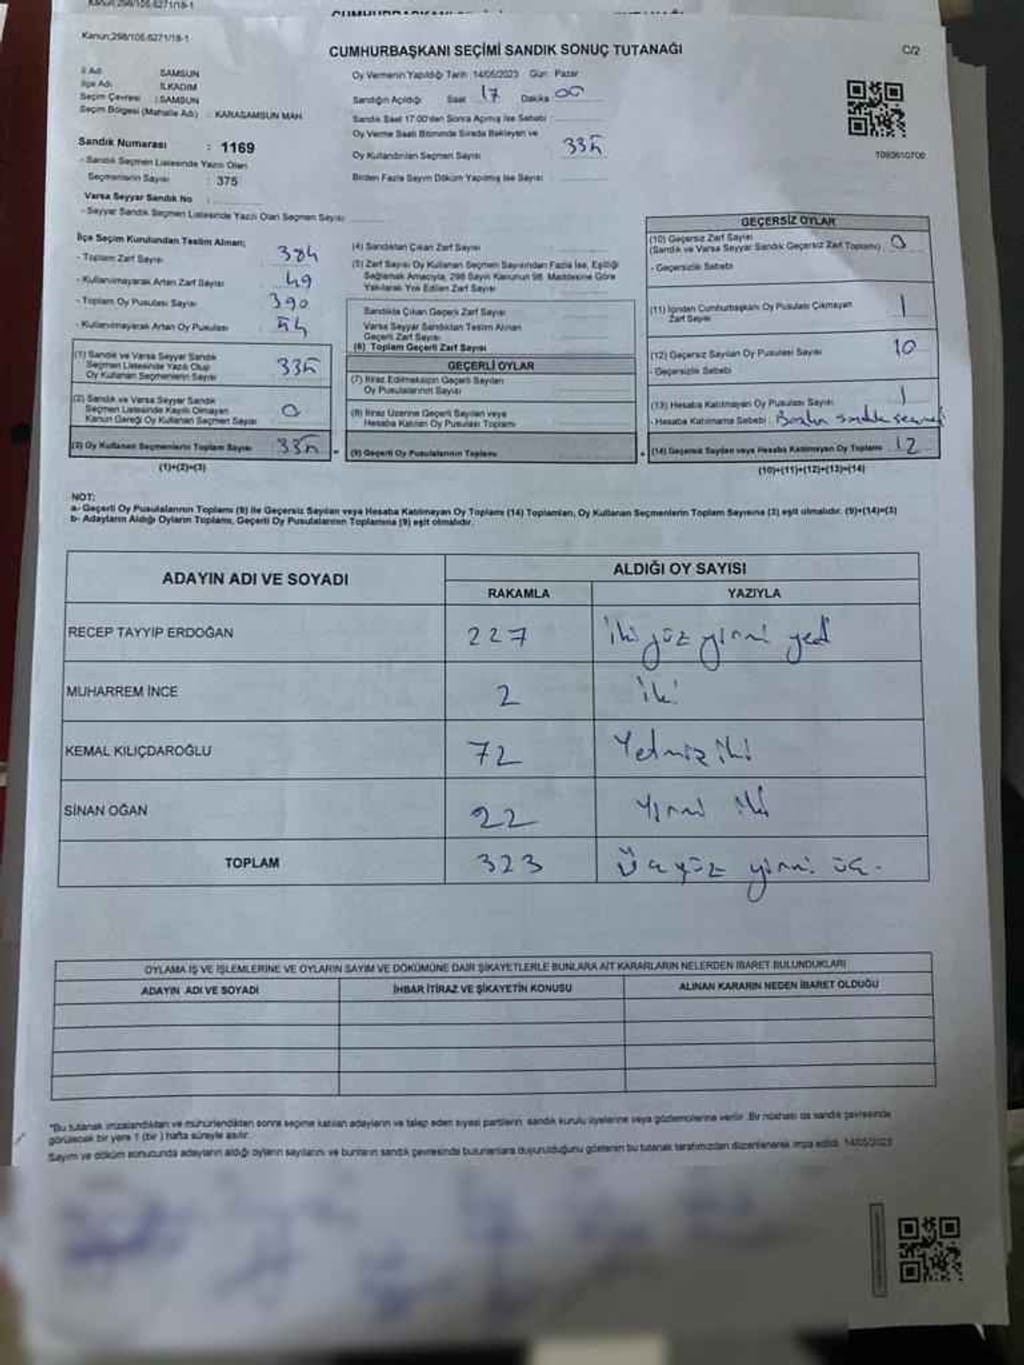 Kanun;298/105.6271/18-1
Kanun;298/105.6271/18-1
CUMHURBAŞKANI SEÇİMİ SANDIK SONUÇ TUTANAĞI
C/2
İl Adı SAMSUN
İlçe Adı İLKADIM
Seçim Çevresi : SAMSUN
Seçim Bölgesi (Mahalle Adı) : KARASAMSUN MAH.
Oy Vermenin Yapıldığı Tarih :14/05/2023 Gün: Pazar
Sandığın Açıldığı Saat 17 Dakika 00
Sandık Saat 17:00'den Sonra Açılmış İse Sebebi :
Oy Verme Saati Bitiminde Sırada Bekleyen ve
Oy Kullandırılan Seçmen Sayısı 335
Birden Fazla Sayım Döküm Yapılmış İse Sayısı
Sandık Numarası : 1169
- Sandık Seçmen Listesinde Yazılı Olan
Seçmenlerin Sayısı : 375
Varsa Seyyar Sandık No :
- Seyyar Sandık Seçmen Listesinde Yazılı Olan Seçmen Sayısı
İlçe Seçim Kurulundan Teslim Alınan;
- Toplam Zarf Sayısı 384
- Kullanılmayarak Artan Zarf Sayısı 49
- Toplam Oy Pusulası Sayısı 390
- Kullanılmayarak Artan Oy Pusulası 54
(1) Sandık ve Varsa Seyyar Sandık
Seçmen Listesinde Yazılı Olup
Oy Kullanan Seçmenlerin Sayısı 335
(2) Sandık ve Varsa Seyyar Sandık
Seçmen Listesinde Kayıtlı Olmayan
Kanun Gereği Oy Kullanan Seçmen Sayısı 0
(3) Oy Kullanan Seçmenlerin Toplam Sayısı 335
(1)+(2)=(3)
(4) Sandıktan Çıkan Zarf Sayısı
(5) Zarf Sayısı Oy Kullanan Seçmen Sayısından Fazla İse, Eşitliği
Sağlamak Amacıyla, 298 Sayılı Kanunun 98. Maddesine Göre
Yakılarak Yok Edilen Zarf Sayısı
Sandıkta Çıkan Geçerli Zarf Sayısı
Varsa Seyyar Sandıktan Teslim Alınan
Geçerli Zarf Sayısı
(6) Toplam Geçerli Zarf Sayısı
GEÇERLİ OYLAR
(7) İtiraz Edilmeksizin Geçerli Sayılan
Oy Pusulalarının Sayısı
(8) İtiraz Üzerine Geçerli Sayılan veya
Hesaba Katılan Oy Pusulası Toplamı
(9) Geçerli Oy Pusulalarının Toplamı
GEÇERSİZ OYLAR
(10) Geçersiz Zarf Sayısı
(Sandık ve Varsa Seyyar Sandık Geçersiz Zarf Toplamı) 0
- Geçersizlik Sebebi
(11) İçinden Cumhurbaşkanı Oy Pusulası Çıkmayan
Zarf Sayısı 1
(12) Geçersiz Sayılan Oy Pusulası Sayısı 10
- Geçersizlik Sebebi
(13) Hesaba Katılmayan Oy Pusulası Sayısı 1
- Hesaba Katılmama Sebebi : Başka sandık seçmeni
(14) Geçersiz Sayılan veya Hesaba Katılmayan Oy Toplamı 12
(10)+(11)+(12)+(13)=(14)
NOT:
a- Geçerli Oy Pusulalarının Toplamı (9) ile Geçersiz Sayılan veya Hesaba Katılmayan Oy Toplamı (14) Toplamları, Oy Kullanan Seçmenlerin Toplam Sayısına (3) eşit olmalıdır. (9)+(14)=(3)
b- Adayların Aldığı Oyların Toplamı, Geçerli Oy Pusulalarının Toplamına (9) eşit olmalıdır.
ADAYIN ADI VE SOYADI
ALDIĞI OY SAYISI
RAKAMLA YAZIYLA
RECEP TAYYİP ERDOĞAN 227 iki yüz yirmi yedi
MUHARREM İNCE 2 iki
KEMAL KILIÇDAROĞLU 72 Yetmiz iki
SİNAN OĞAN 22 Yirmi iki
TOPLAM 323 Üçyüz yirmi üç.
OYLAMA İŞ VE İŞLEMLERİNE VE OYLARIN SAYIM VE DÖKÜMÜNE DAİR ŞİKAYETLERLE BUNLARA AİT KARARLARIN NELERDEN İBARET BULUNDUKLARI
ADAYIN ADI VE SOYADI İHBAR İTİRAZ VE ŞİKAYETİN KONUSU ALINAN KARARIN NEDEN İBARET OLDUĞU
"Bu tutanak imzalandıktan ve mühürlendikten sonra seçime katılan adayların ve talep eden siyasi partilerin sandık kurulu üyelerine veya gözlemcilerine verilir. Bir nüshası da sandık çevresinde
görülecek bir yere 1 (bir ) hafta süreyle asılır.
Sayım ve döküm sonucunda adayların aldığı oyların sayılarını ve bunların sandık çevresinde bulunanlara duyurulduğunu gösteren bu tutanak tarafımızdan düzenlenerek imza edildi. 14/05/2023